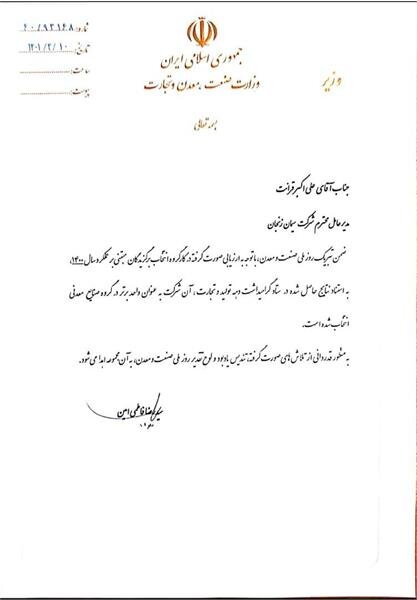 شماره: ۶۰/۹۳۱۶۸
تاریخ: ۱۴۰۱/۴/۱۰
ساعت:
پیوست:
جمهوری اسلامی ایران
وزارت صنعت، معدن و تجارت
وزیر
بسمه تعالی
جناب آقای علی اکبر قرائت
مدیرعامل محترم شرکت سیمان زنجان
ضمن تبریک روز ملی صنعت و معدن، با توجه به ارزیابی صورت گرفته در کارگروه انتخاب برگزیدگان مبتنی بر عملکرد سال ۱۴۰۰،
به استناد نتایج حاصل شده در ستاد گرامیداشت دهه تولید و تجارت، آن شرکت به عنوان واحد برتر در گروه صنایع معدنی
انتخاب شده است.
به منظور قدردانی از تلاش های صورت گرفته، تندیس یادبود و لوح تقدیر روز ملی صنعت و معدن، به آن مجموعه اهدا می شود.
سیدرضا فاطمی امین